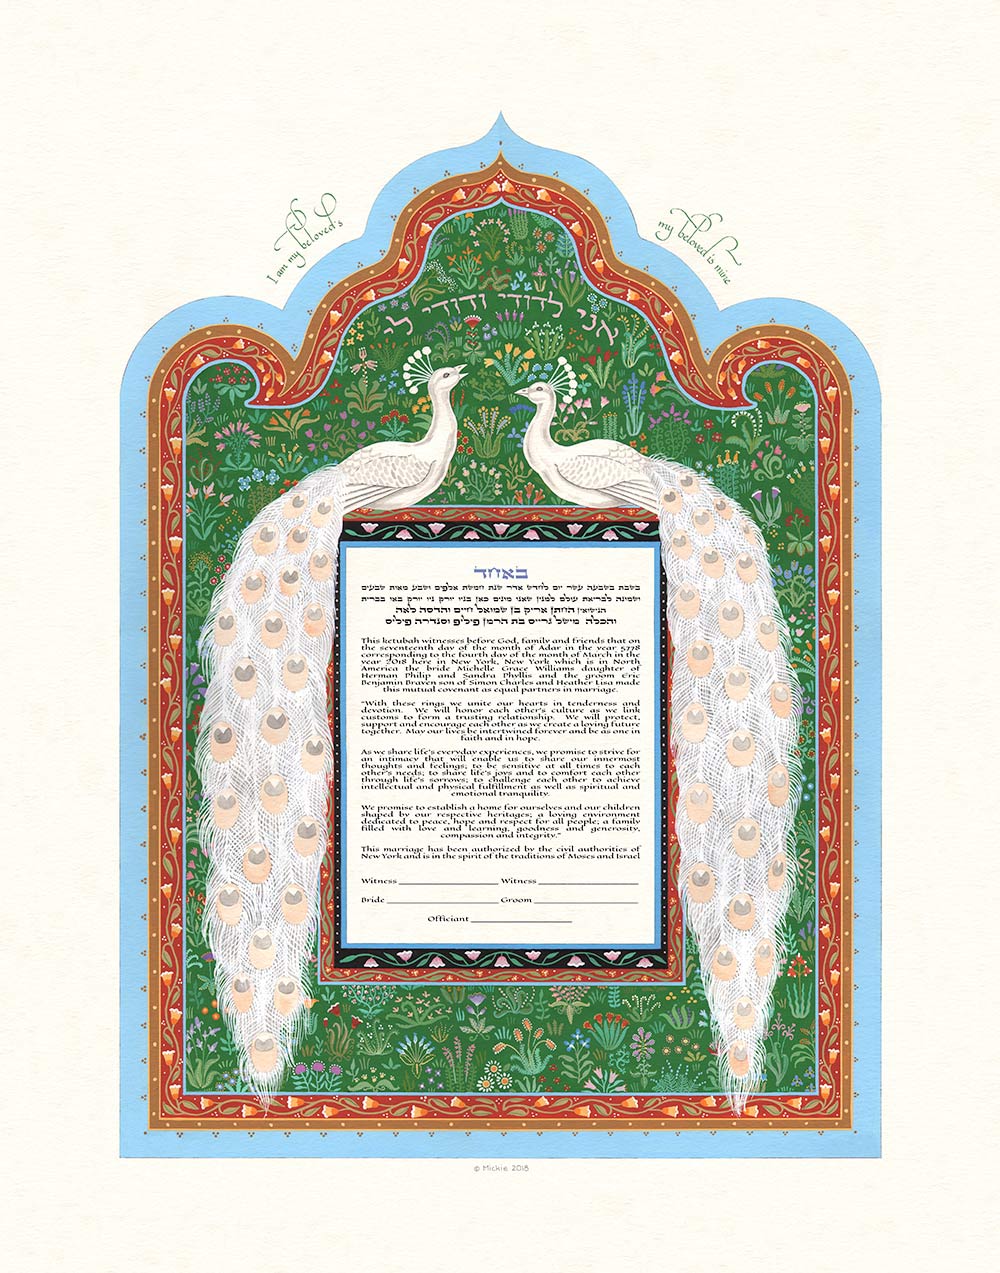 I am my beloved's
my beloved is mine
אני לדודי ודודי לי
באחד
בשבת בשבעה עשר יום לחדש אדר שנת חמשת אלפים ושבע מאות שבעים
ושמונה לבריאת עולם למנין שאנו מונים כאן בניו יורק ניו יורק באי בברית
הנישואין החתן אריק בן שמואל חיים והדסה לאה
והכלה מישל גרייס בת הרמן פיליפ וסנדרה פיליס
This ketubah witnesses before God, family and friends that on
the seventeenth day of the month of Adar in the year 5778
corresponding to the fourth day of the month of March in the
year 2018 here in New York, New York which is in North
America the bride Michelle Grace Williams daughter of
Herman Philip and Sandra Phyllis and the groom Eric
Benjamin Braven son of Simon Charles and Heather Lisa made
this mutual covenant as equal partners in marriage.
"With these rings we unite our hearts in tenderness and
devotion. We will honor each other's culture as we link
customs to form a trusting relationship. We will protect,
support and encourage each other as we create a loving future
together. May our lives be intertwined forever and be as one in
faith and in hope.
As we share life's everyday experiences, we promise to strive for
an intimacy that will enable us to share our innermost
thoughts and feelings; to be sensitive at all times to each
other's needs; to share life's joys and to comfort each other
through life's sorrows; to challenge each other to achieve
intellectual and physical fulfillment as well as spiritual and
emotional tranquility.
We promise to establish a home for ourselves and our children
shaped by our respective heritages; a loving environment
dedicated to peace, hope and respect for all people; a family
filled with love and learning, goodness and generosity,
compassion and integrity."
This marriage has been authorized by the civil authorities of
New York and is in the spirit of the traditions of Moses and Israel
Witness Witness
Bride Groom
Officiant
© Mickie 2018